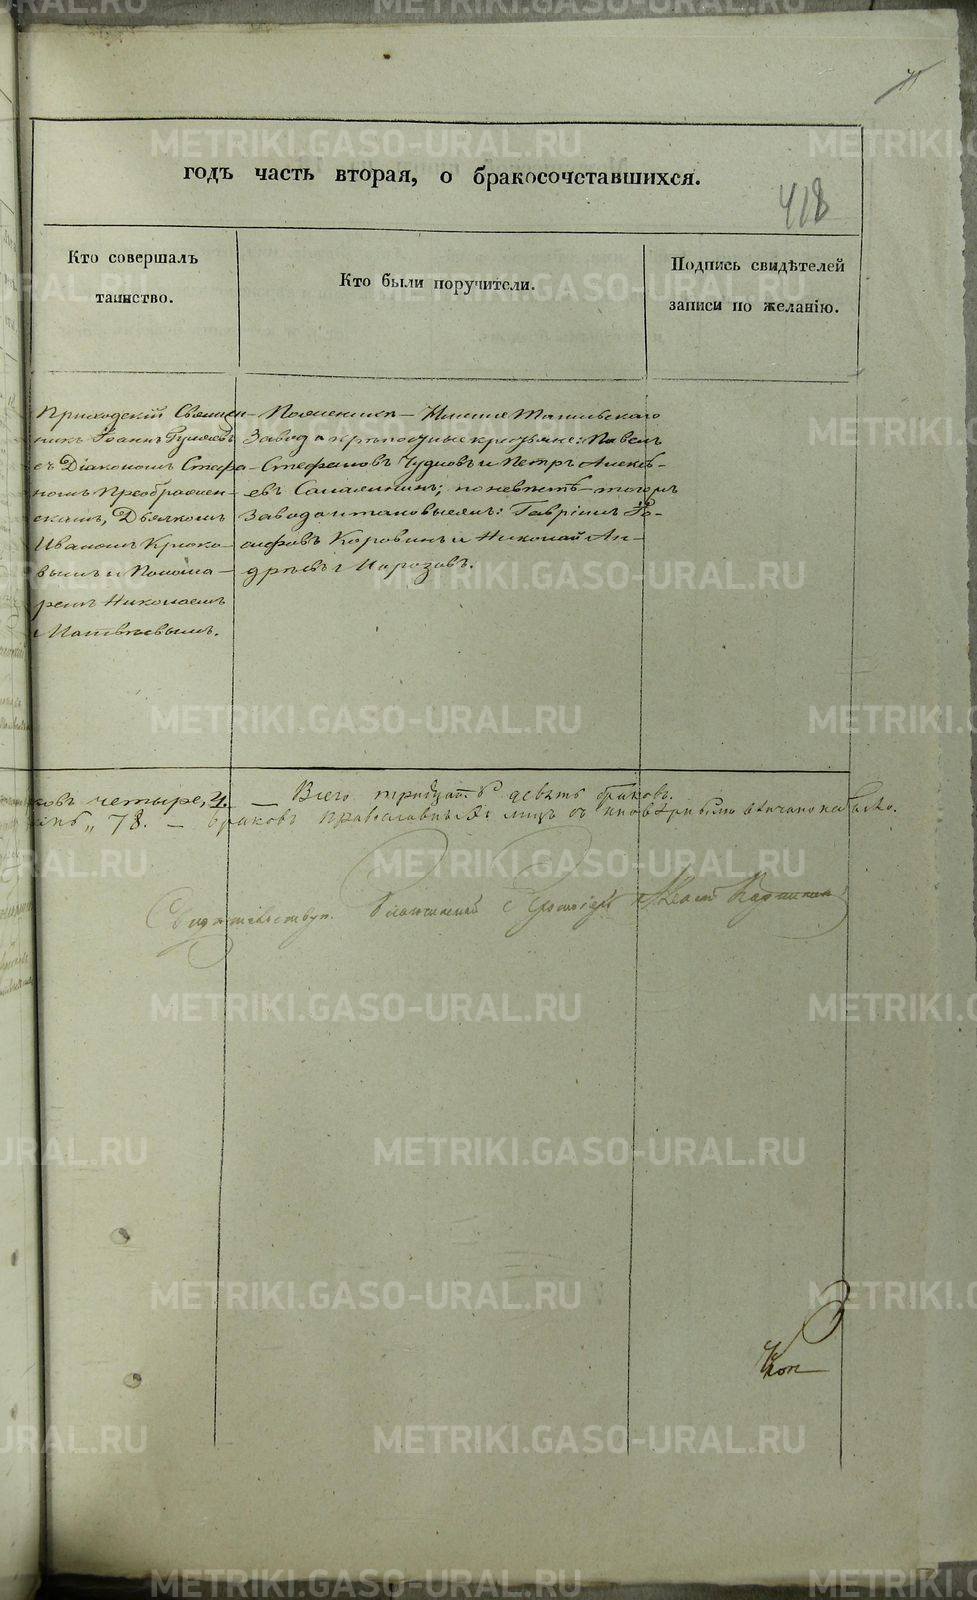 418
годъ часть вторая, о бракосочетавшихся.
Кто совершалъ
таинство.
Кто были поручители.
Подпись свидѣтелей
записи по желанію.
Приходскій Священ-
никъ Іоаннъ
съ Діакономъ Стефа-
номъ Преображен-
скимъ, Дьячкомъ
Иваномъ Крюко-
вымъ и Понома-
ремъ Николаемъ
Матвѣевымъ.
По женихѣ - Нижне Тагильскаго
Завода крѣпостные крестьяне: Павелъ
Стефановъ Чудновъ и Петръ Алексѣ-
евъ; по невѣстѣ - тогожъ
Завода и таковыежъ: Гавріилъ Іо-
сифовъ Коровинъ и Николай Ан-
дрѣевъ Морозовъ.
ковъ четыре, 4. - Всего тридцать девять браковъ.
78. - браковъ православныхъ лицъ съ иновѣрными вѣнчано не было.
Свидѣтельствуетъ Благочинный
METRIKI.GASO-URAL.RU